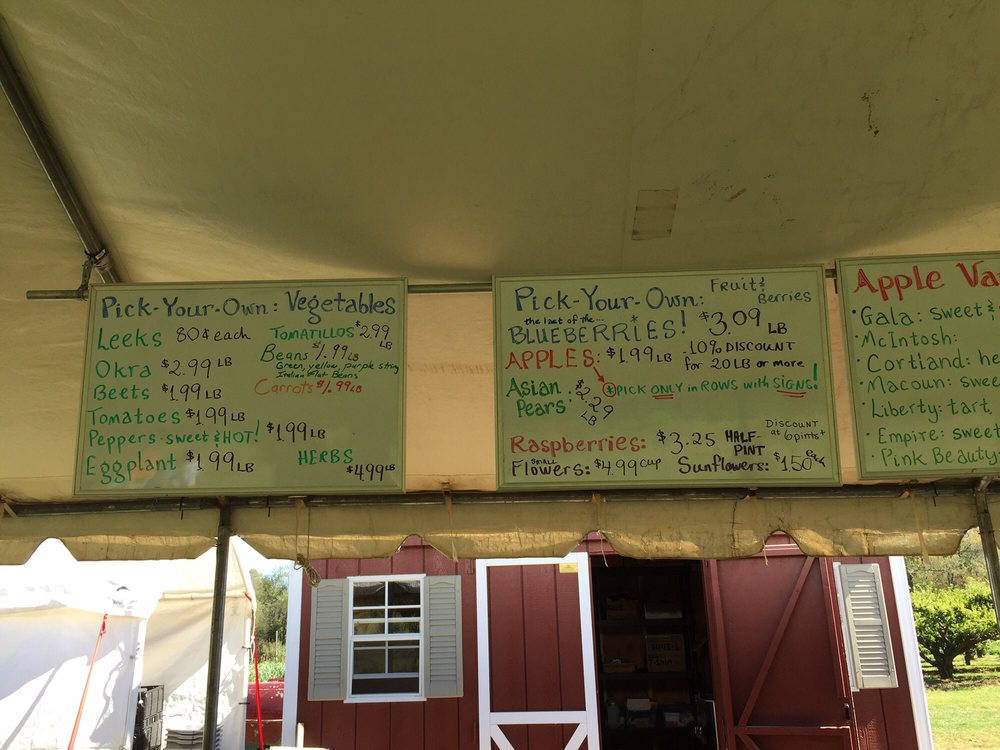 Pick-Your-Own: Vegetables
Leeks 80¢ each
Okra $2.99 LB
Beets $1.99 LB
Tomatoes $1.99 LB
Peppers - sweet & HOT! $1.99 LB
Eggplant $1.99 LB
Tomatillos $2.99 LB
Beans $1.99 LB
Green, yellow, purple string
Italian Flat Beans
Carrots $1.99 LB
HERBS
$4.99 LB
Pick-Your-Own: Fruit & Berries
the last of the...
BLUEBERRIES! $3.09 LB
APPLES: $1.99 LB - 10% DISCOUNT
for 20 LB or more
*PICK ONLY in ROWS with SIGNS!
Asian Pears $2.29 LB
Raspberries: $3.25 HALF-PINT
DISCOUNT at 6 pints+
SMALL
Flowers: $4.99 cup Sunflowers: $1.50 each
Apple Va
• Gala: sweet &
• McIntosh:
• Cortland: he
• Macoun: swee
• Liberty: tart,
• Empire: sweet
• Pink Beauty